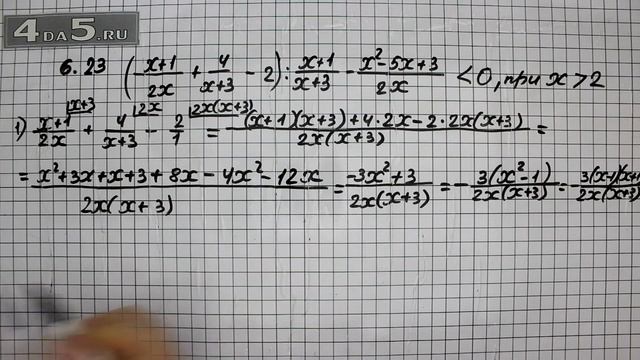 4DA5.RU
6.23 (x+1/2x + 4/x+3 - 2) : x+1/x+3 - x²-5x+3/2x < 0, при x > 2
1) x+1/2x |x+3 + 4/x+3 |2x - 2/1 |2x(x+3) = (x+1)(x+3)+4·2x-2·2x(x+3)/2x(x+3) =
= x²+3x+x+3+8x-4x²-12x/2x(x+3) = -3x²+3/2x(x+3) = -3(x²-1)/2x(x+3) = -3(x-1)(x+1/2x(x+3)